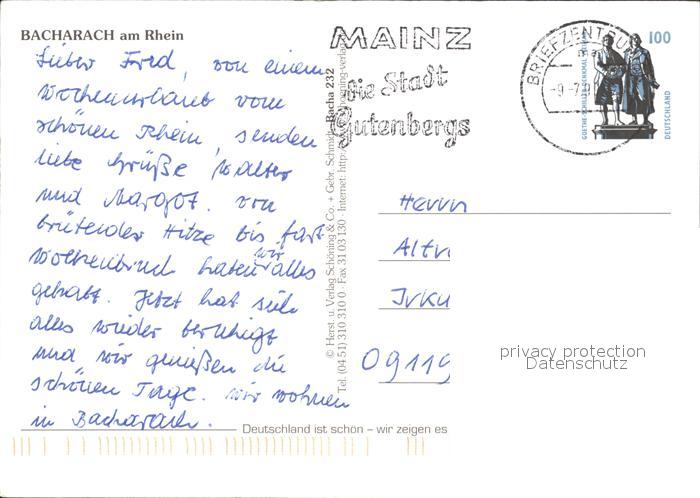 BACHARACH am Rhein
Lieber Fred, von einem
Wochenurlaub vom
schönen Rhein, senden
liebe Grüße Walter
und Margot. Von
brütender Hitze bis fast
Wolkenbruch hatten wir alles
gehabt. Jetzt hat sich
alles wieder beruhigt
und wir genießen die
schönen Tage. Wir wohnen
in Bacharach.
© Herst. u. Verlag Schöning & Co. + Gebr. Schmidt Bacha 232
Tel. (04 51) 310 310 0 · Fax 31 03 130 · Internet: http:
MAINZ
Die Stadt
Gutenbergs
BRIEFZENTRUM
GOETHE-SCHILLER-DENKMAL
100
DEUTSCHLAND
Herrn
09119
privacy protection
Datenschutz
Deutschland ist schön – wir zeigen es